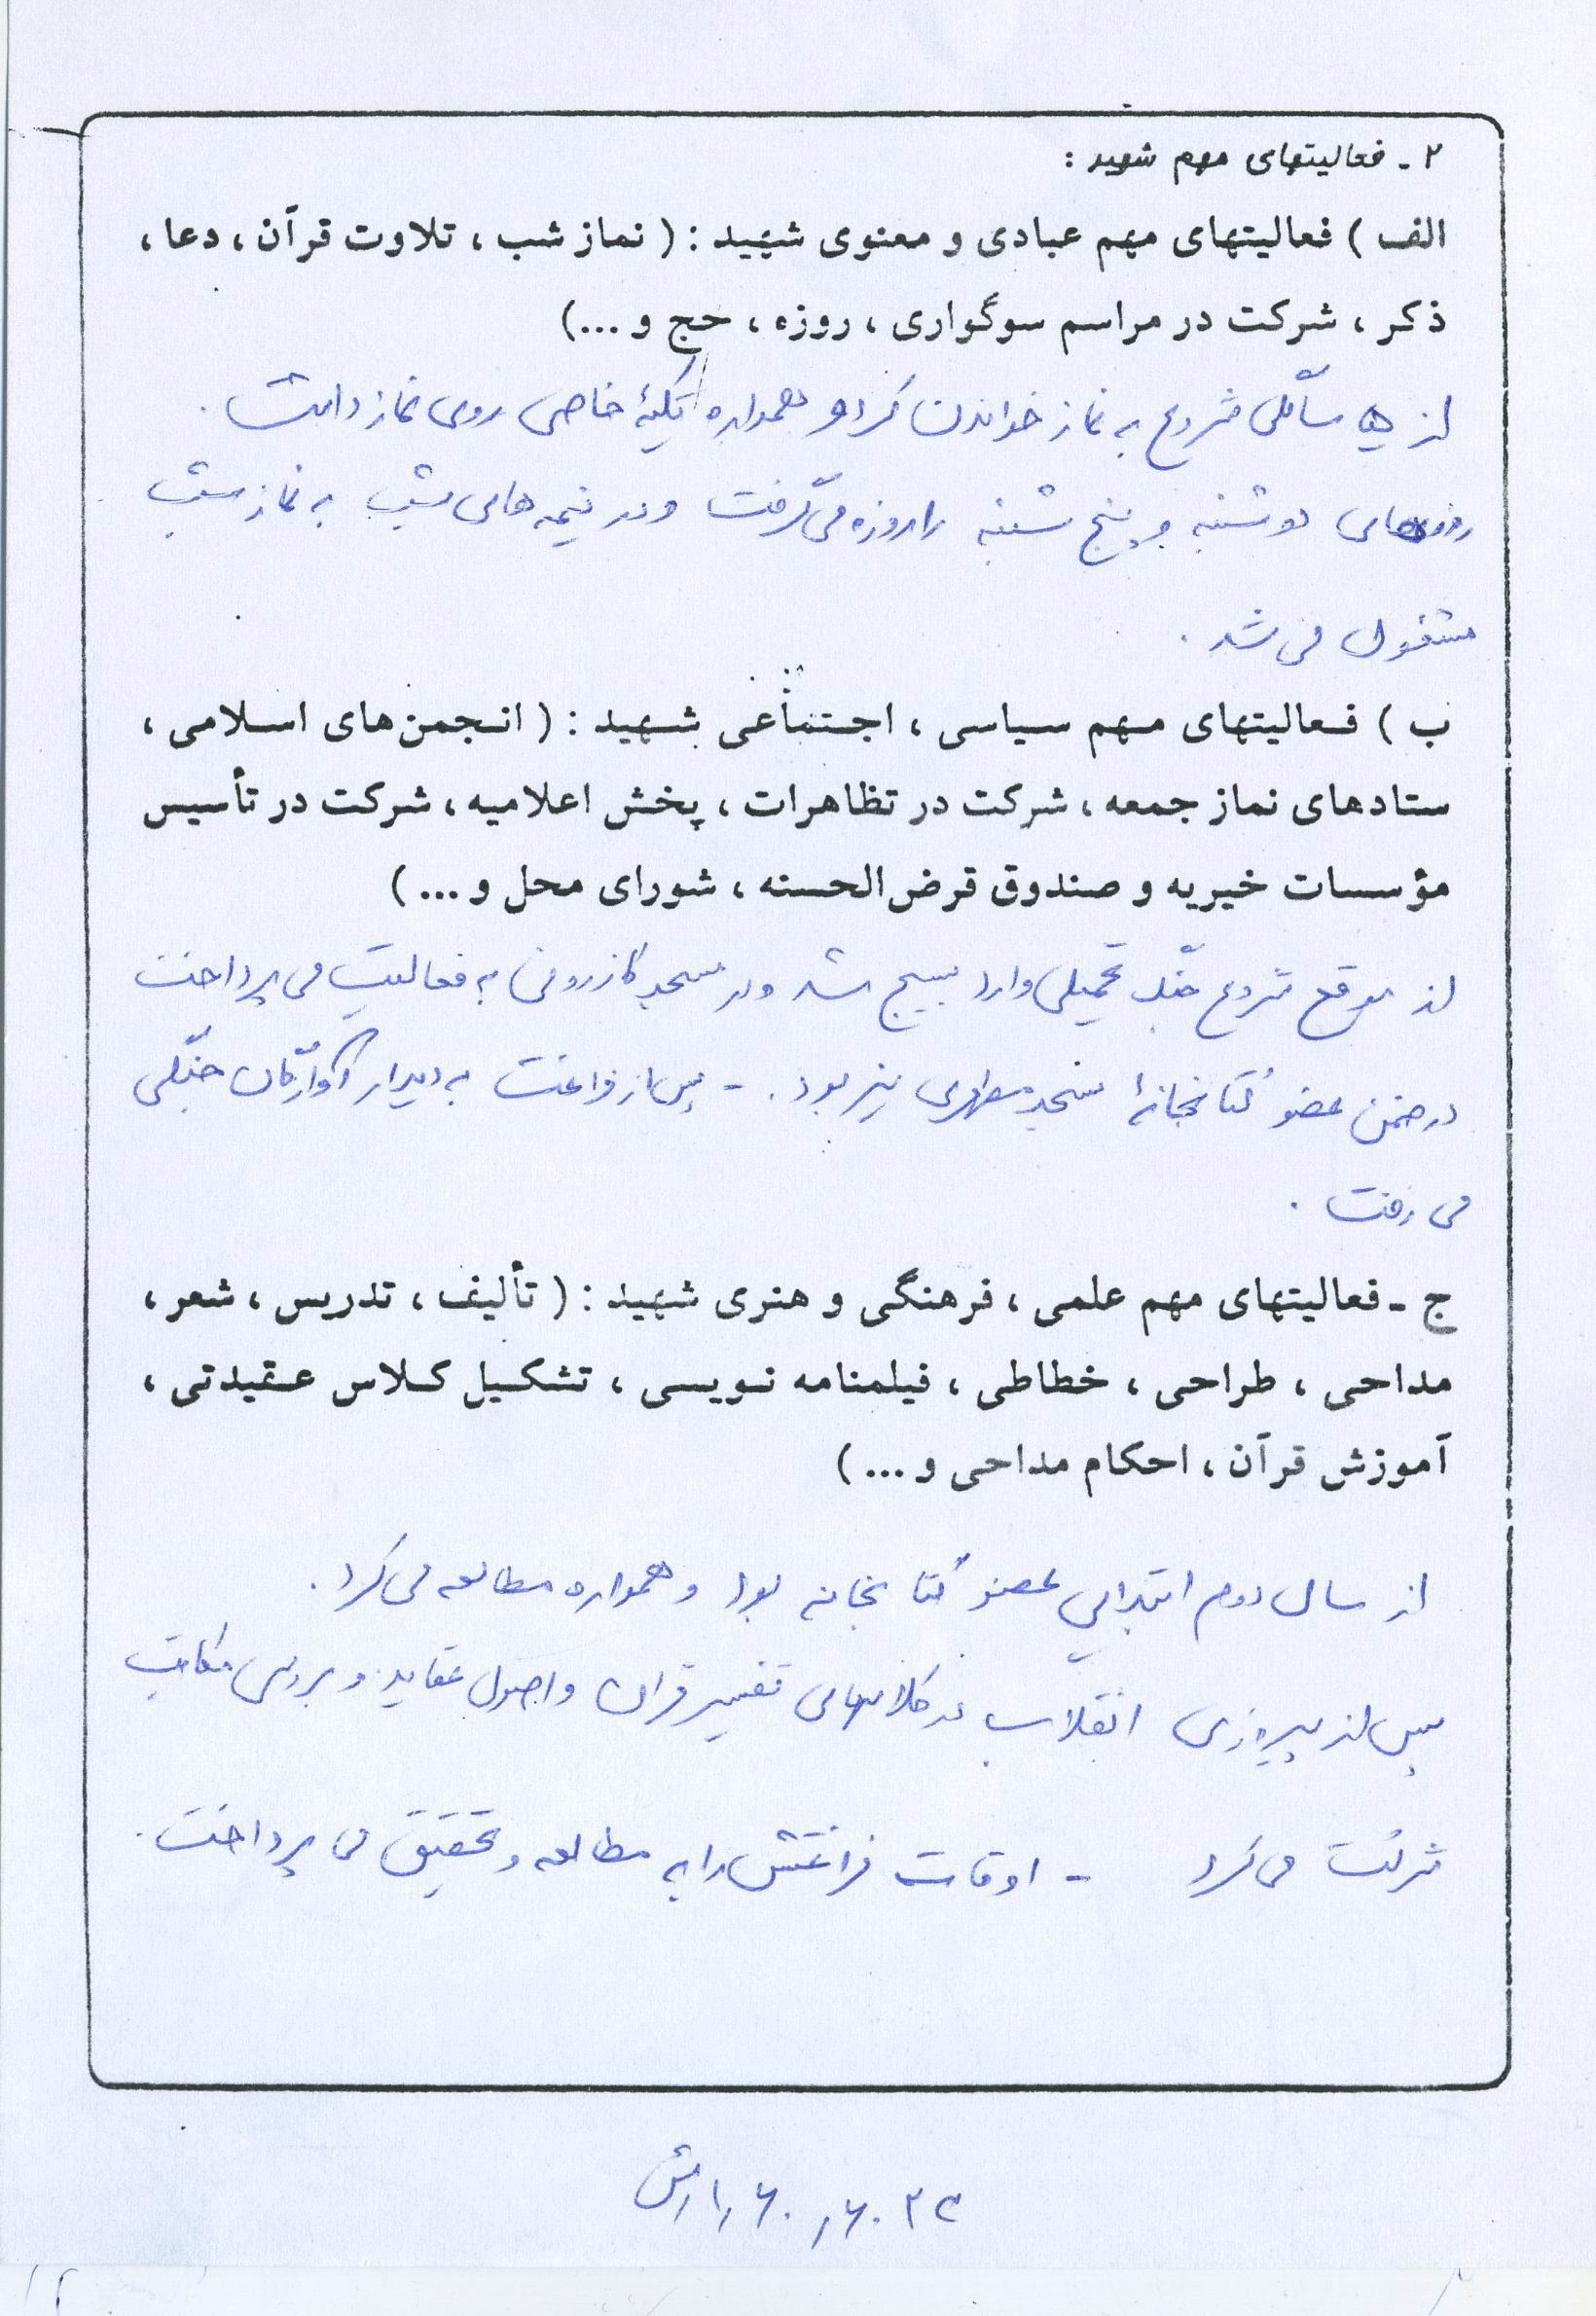 ۲ - فعالیتهای مهم شهید :
الف ) فعالیتهای مهم عبادی و معنوی شهید : ( نماز شب ، تلاوت قرآن ، دعا ،
ذکر ، شرکت در مراسم سوگواری ، روزه ، حج و ...)
از سالگی شروع به نماز خواندن کرد و همواره تکیهٔ خاصی روی نماز داشت .
روزهای دوشنبه و پنج شنبه را روزه می‌گرفت و در نیمه های شب به نماز شب
مشغول می شد .
ب ) فعالیتهای مهم سیاسی ، اجتماعی شهید : ( انجمن‌های اسلامی ،
ستادهای نماز جمعه ، شرکت در تظاهرات ، پخش اعلامیه ، شرکت در تأسیس
مؤسسات خیریه و صندوق قرض‌الحسنه ، شورای محل و ... )
از موقع شروع جنگ تحمیلی وارد بسیج شد و در مسجد کازرونی به فعالیت می پرداخت
در ضمن عضو کتابخانهٔ مسجد مطهری نیز بود . - پس از فراغت به دیدار آوارگان جنگی
می رفت .
ج - فعالیتهای مهم علمی ، فرهنگی و هنری شهید : ( تألیف ، تدریس ، شعر ،
مداحی ، طراحی ، خطاطی ، فیلمنامه نویسی ، تشکیل کلاس عقیدتی ،
آموزش قرآن ، احکام مداحی و ... )
از سال دوم ابتدایی عضو کتابخانه بود و همواره مطالعه می کرد .
پس از پیروزی انقلاب در کلاسهای تفسیر قرآن و اصول عقاید و بررسی مکاتب
شرکت می کرد - اوقات فراغتش را به مطالعه و تحقیق می پرداخت .